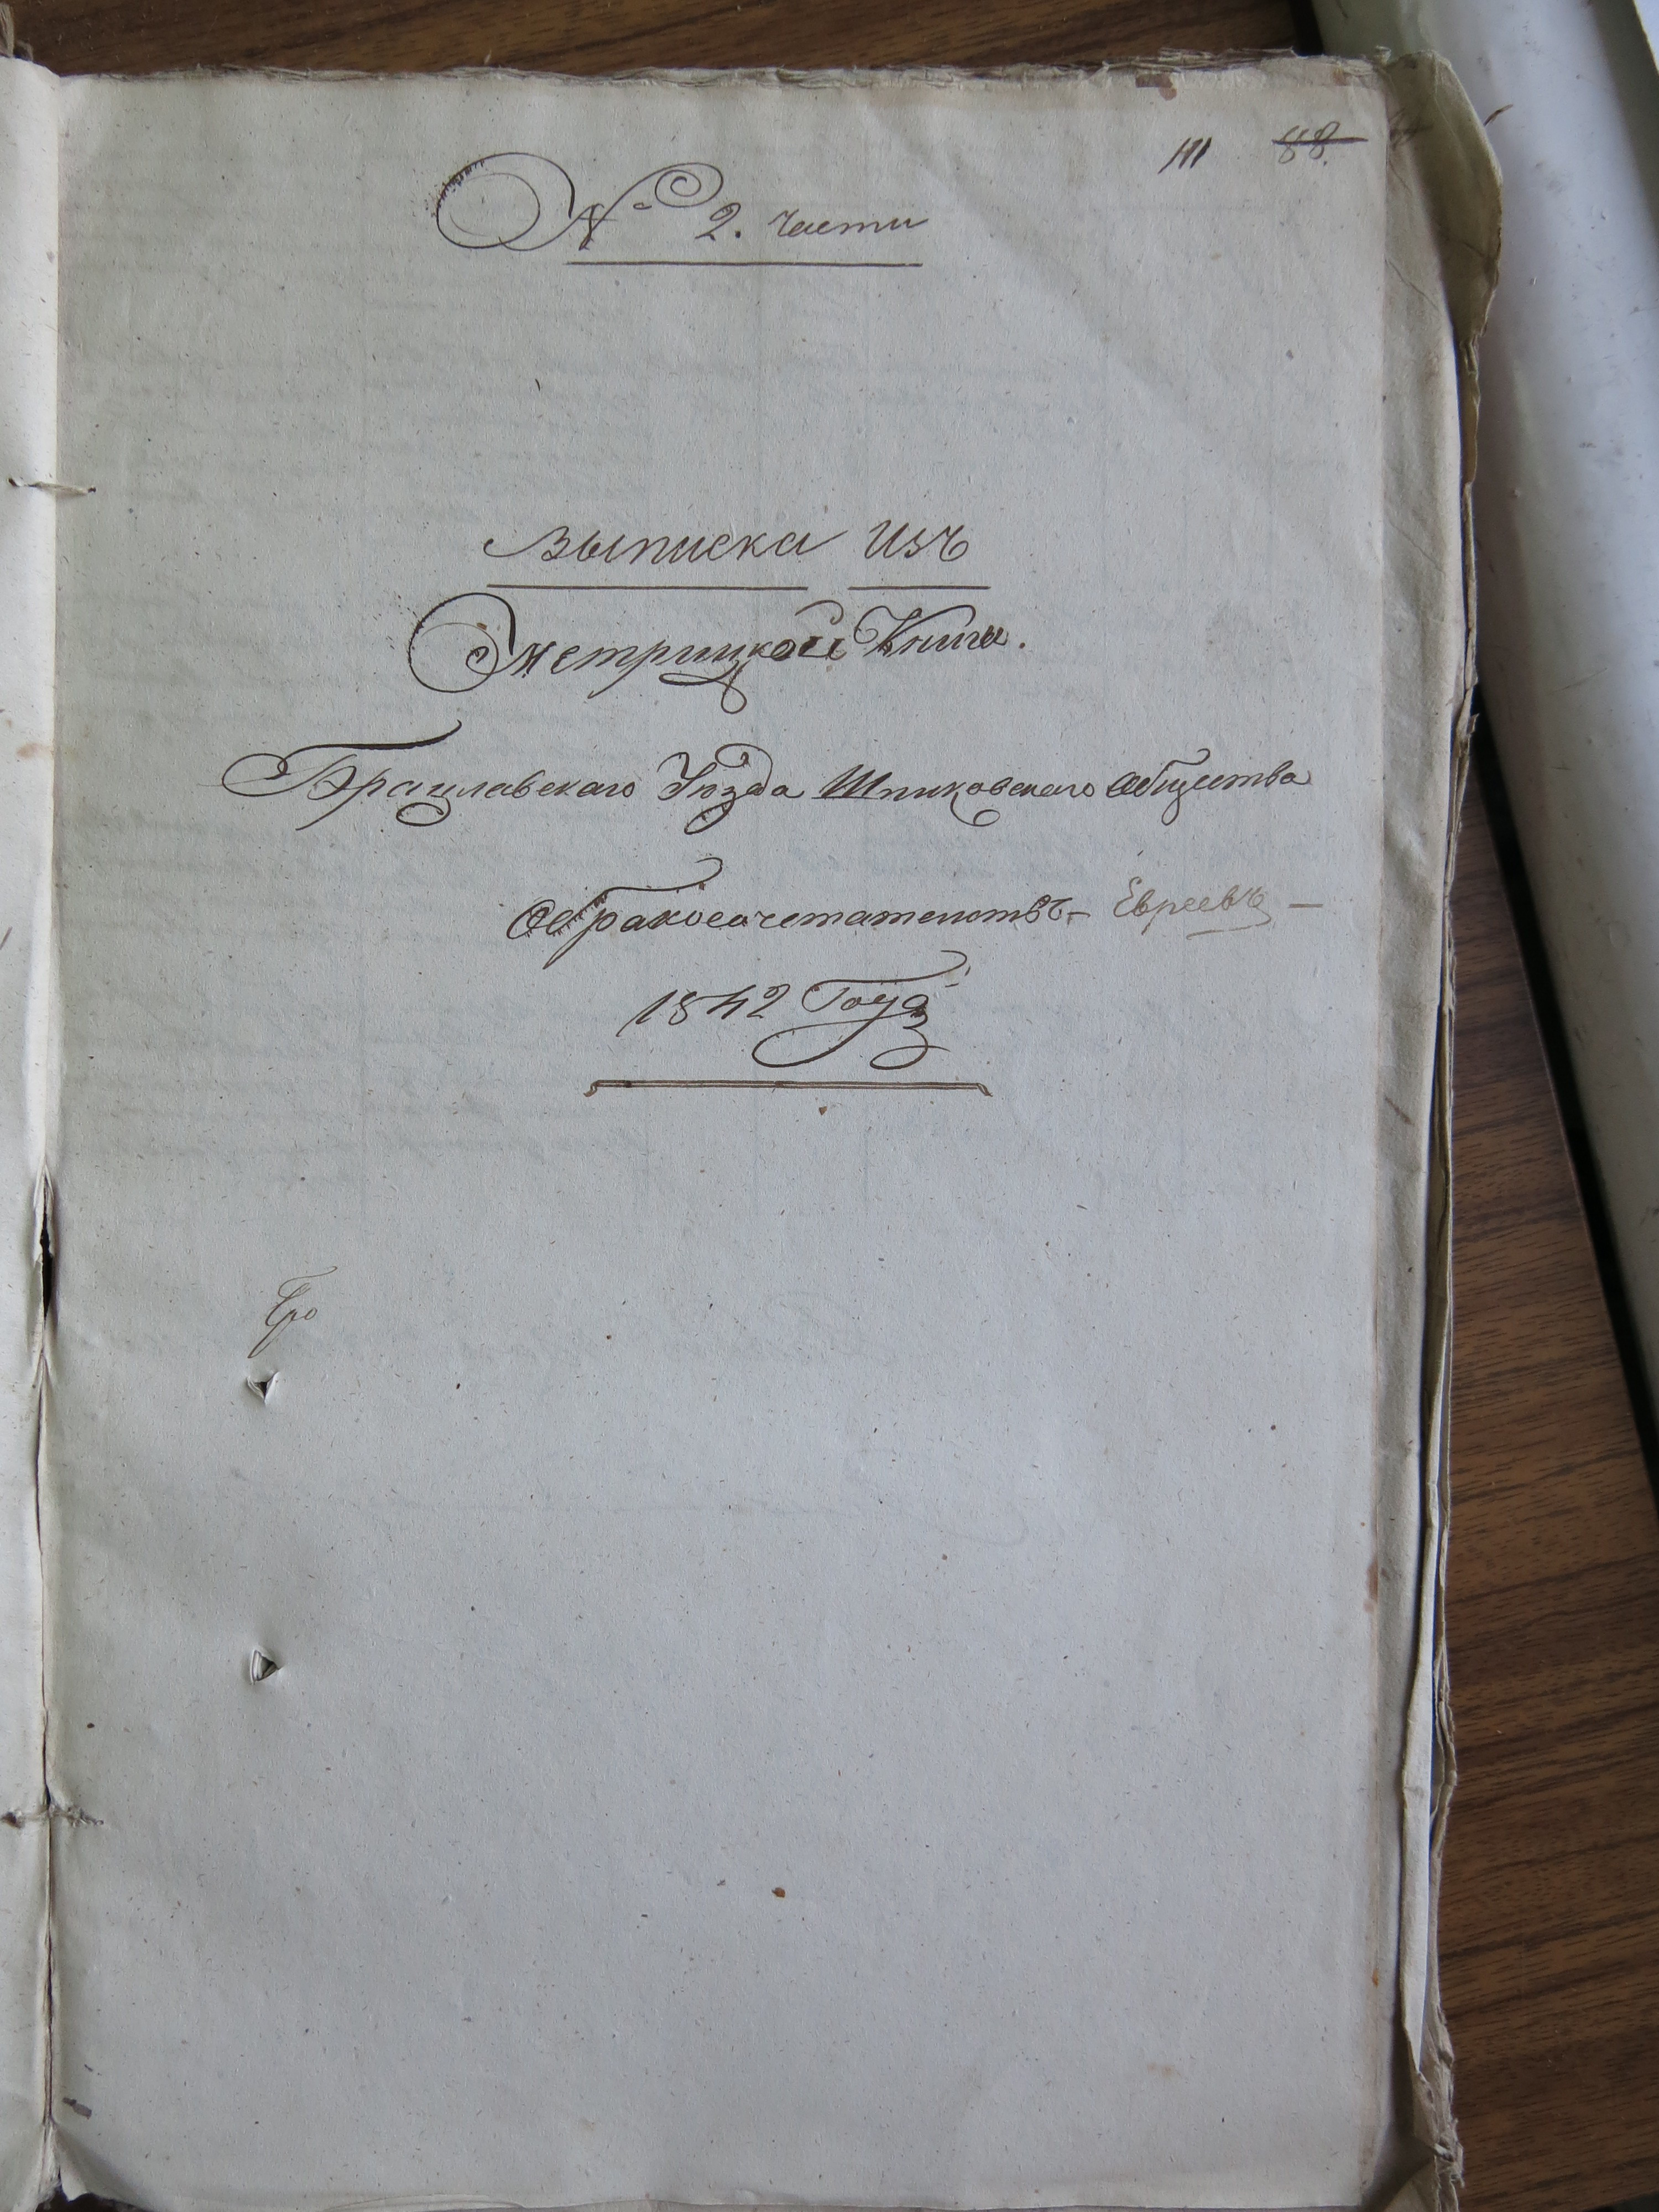 111 88.
№ 2. части
Выписка изъ
Метрицкой Книги.
Брацлавскаго Уѣзда Шпиковскаго Общества
Обракосочетательствъ - Евреевъ -
1842 Года